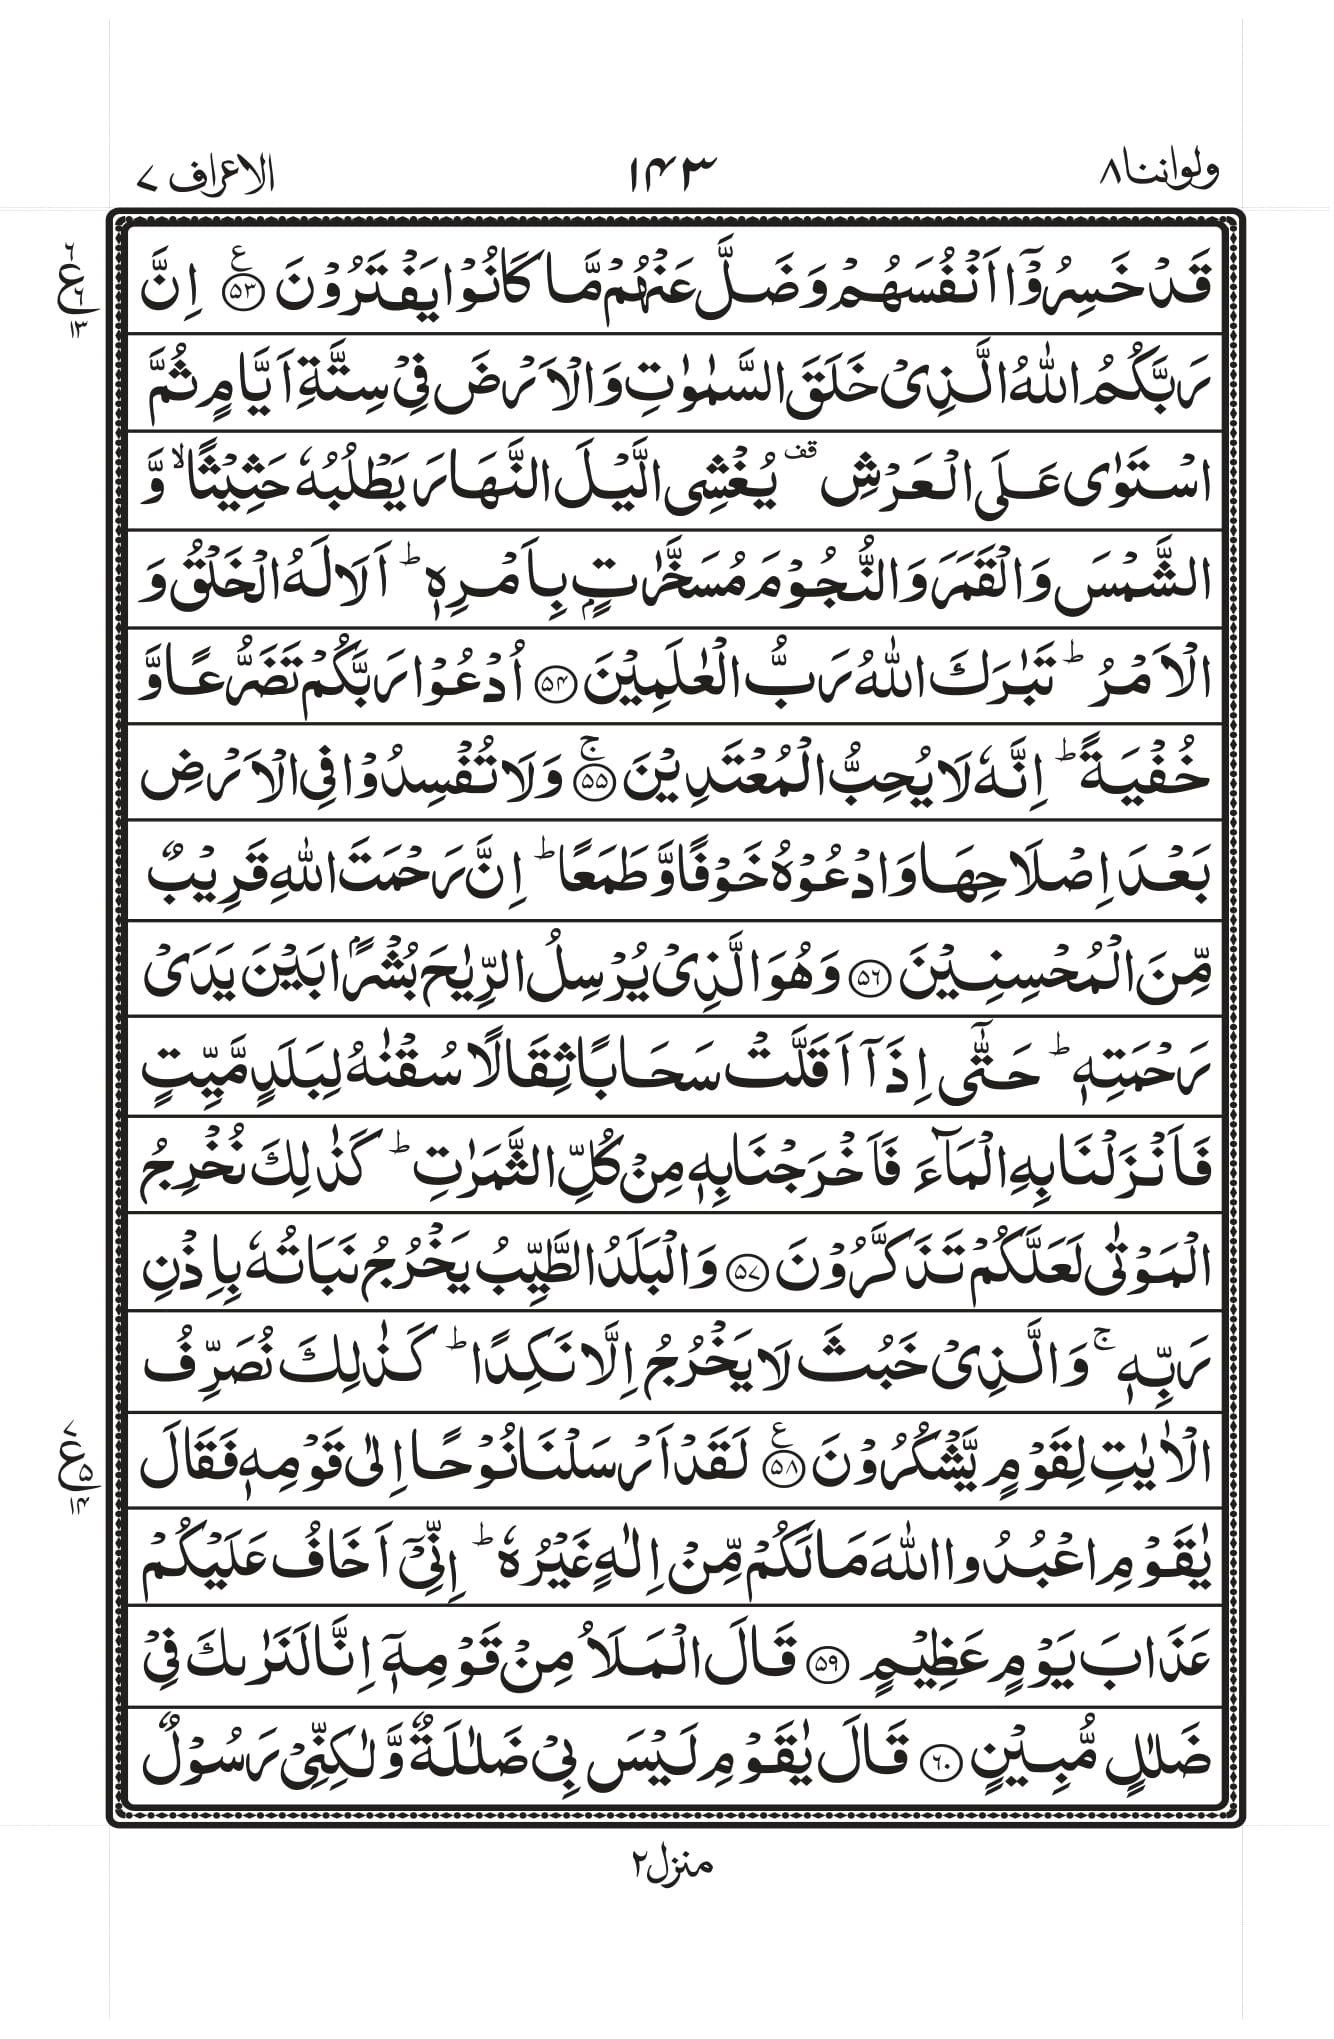 ولواننا ٨
١٤٣
الاعراف ٧
قَدۡ خَسِرُوۡۤا اَنۡفُسَهُمۡ وَضَلَّ عَنۡهُمۡ مَّا كَانُوۡا يَفۡتَرُوۡنَ ﴿۵۳﴾ ع اِنَّ
رَبَّكُمُ اللّٰهُ الَّذِىۡ خَلَقَ السَّمٰوٰتِ وَالۡاَرۡضَ فِىۡ سِتَّةِ اَيَّامٍ ثُمَّ
اسۡتَوٰى عَلَى الۡعَرۡشِ قف يُغۡشِى الَّيۡلَ النَّهَارَ يَطۡلُبُهٗ حَثِيۡثًا ۙ وَّ
الشَّمۡسَ وَالۡقَمَرَ وَالنُّجُوۡمَ مُسَخَّرٰتٍۢ بِاَمۡرِهٖ ؕ اَلَا لَهُ الۡخَلۡقُ وَ
الۡاَمۡرُ ؕ تَبٰرَكَ اللّٰهُ رَبُّ الۡعٰلَمِيۡنَ ﴿۵۴﴾ اُدۡعُوۡا رَبَّكُمۡ تَضَرُّعًا وَّ
خُفۡيَةً ؕ اِنَّهٗ لَا يُحِبُّ الۡمُعۡتَدِيۡنَ ﴿۵۵﴾ ۚ وَلَا تُفۡسِدُوۡا فِى الۡاَرۡضِ
بَعۡدَ اِصۡلَاحِهَا وَادۡعُوۡهُ خَوۡفًا وَّطَمَعًا ؕ اِنَّ رَحۡمَتَ اللّٰهِ قَرِيۡبٌ
مِّنَ الۡمُحۡسِنِيۡنَ ﴿۵۶﴾ وَهُوَ الَّذِىۡ يُرۡسِلُ الرِّيٰحَ بُشۡرًۢا بَيۡنَ يَدَىۡ
رَحۡمَتِهٖ ؕ حَتّٰۤى اِذَاۤ اَقَلَّتۡ سَحَابًا ثِقَالًا سُقۡنٰهُ لِبَلَدٍ مَّيِّتٍ
فَاَنۡزَلۡنَا بِهِ الۡمَآءَ فَاَخۡرَجۡنَا بِهٖ مِنۡ كُلِّ الثَّمَرٰتِ ؕ كَذٰلِكَ نُخۡرِجُ
الۡمَوۡتٰى لَعَلَّكُمۡ تَذَكَّرُوۡنَ ﴿۵۷﴾ وَالۡبَلَدُ الطَّيِّبُ يَخۡرُجُ نَبَاتُهٗ بِاِذۡنِ
رَبِّهٖ ۚ وَالَّذِىۡ خَبُثَ لَا يَخۡرُجُ اِلَّا نَكِدًا ؕ كَذٰلِكَ نُصَرِّفُ
الۡاٰيٰتِ لِقَوۡمٍ يَّشۡكُرُوۡنَ ﴿۵۸﴾ ع لَقَدۡ اَرۡسَلۡنَا نُوۡحًا اِلٰى قَوۡمِهٖ فَقَالَ
يٰقَوۡمِ اعۡبُدُوا اللّٰهَ مَا لَكُمۡ مِّنۡ اِلٰهٍ غَيۡرُهٗ ؕ اِنِّىۡۤ اَخَافُ عَلَيۡكُمۡ
عَذَابَ يَوۡمٍ عَظِيۡمٍ ﴿۵۹﴾ قَالَ الۡمَلَاُ مِنۡ قَوۡمِهٖۤ اِنَّا لَنَرٰٮكَ فِىۡ
ضَلٰلٍ مُّبِيۡنٍ ﴿۶۰﴾ قَالَ يٰقَوۡمِ لَيۡسَ بِىۡ ضَلٰلَةٌ وَّلٰكِنِّىۡ رَسُوۡلٌ
٦
ع
٦
١٣
٧
ع
۵
١۴
منزل ٢